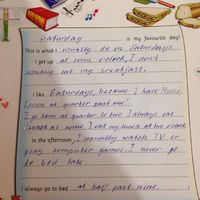 Saturday is my favourite day!
This is what I usually do on Saturdays.
I get up at seven o'clock, I don't
usually eat my breakfast.
I like Saturdays, because I have Music
lesson at quarter past one!
I go home at quarter to two. I always eat
lunch at home. I eat my lunch at two o'clock
In the afternoon, I normally watch TV or
play computer games. I never go
to bed late.
I always go to bed at half past nine.